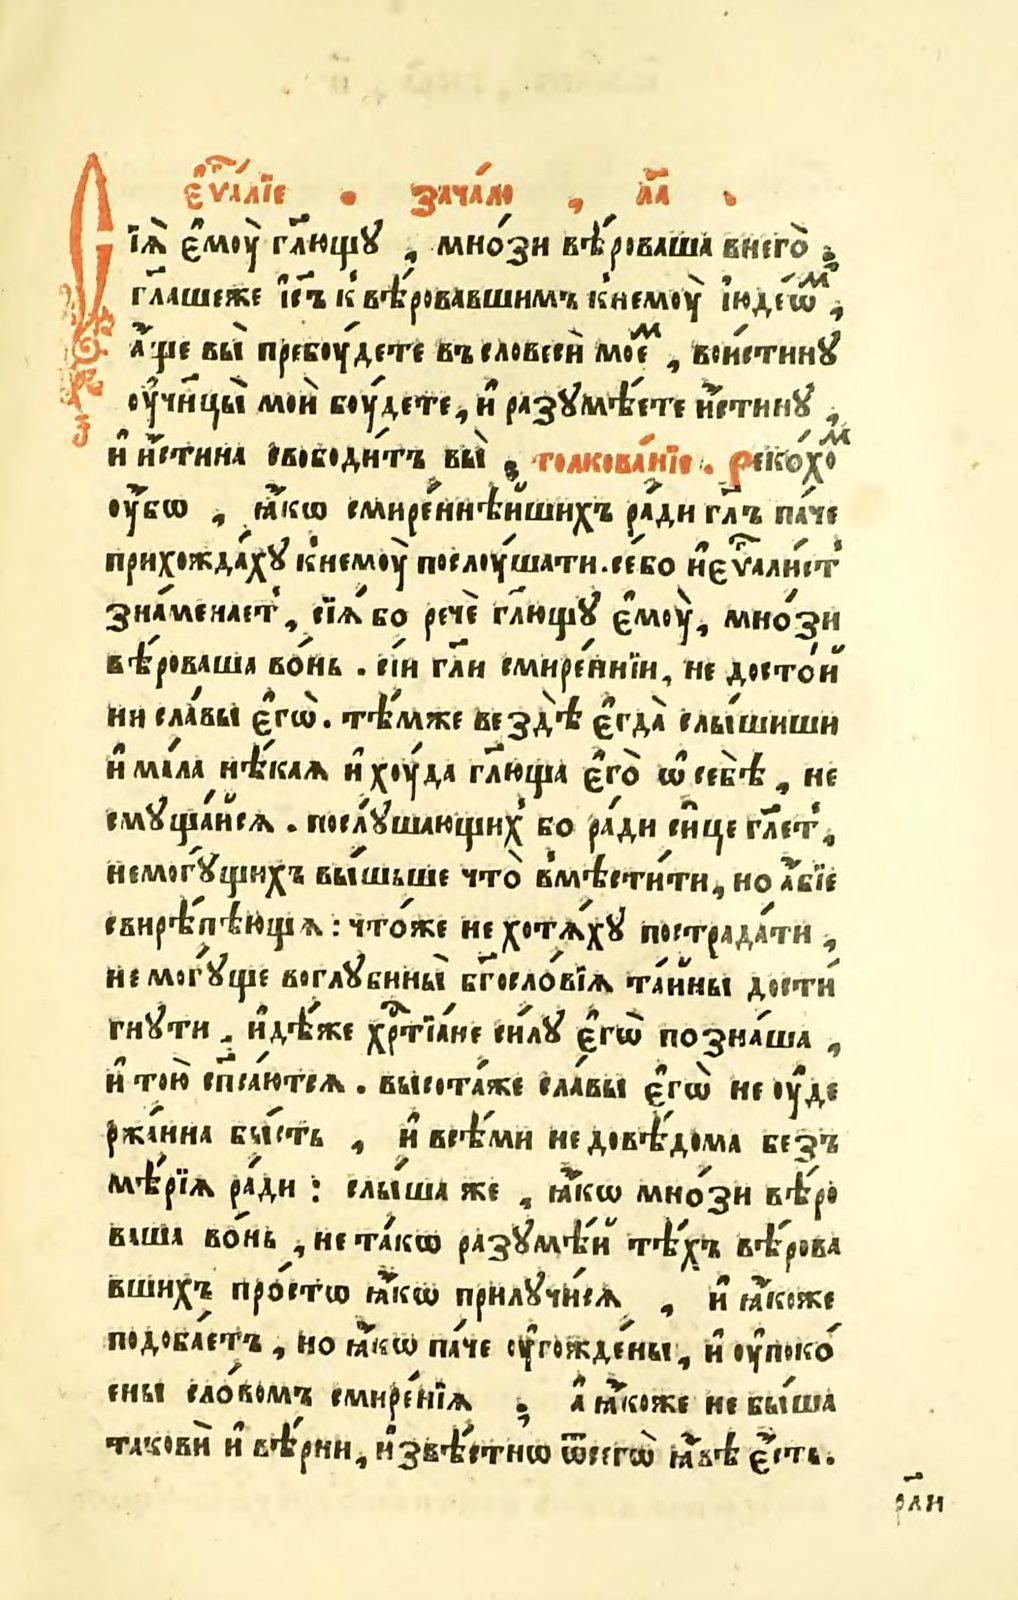 є҆ѵⷢ҇алїе . зача́ло , ла҃ .
Сїѧ̀ є҆мꙋ̀ гл҃ющꙋ , мно́зи вѣ́роваша внего̀ ;
гл҃ашеже і҆с҃ъ к҆ вѣ́ровавшимъ к҆немꙋ̀ і҆юдеѡ́ⷨ ;
а҆́ще вы̀ пребꙋ́дете въ словесѝ моеⷨ҇ , вои́стинꙋ
ᲂу҆чн҃цы̀ моѝ бꙋ́дете , и҆ разꙋмѣ́ете и҆́стинꙋ ,
и҆ и҆́стина свободи́тъ вы̀ ; толкова́нїе . Реко́хоⷨ
ᲂу҆́бѡ , ꙗ҆́кѡ смире́ннѣйшихъ ра́ди гл҃ъ па́че
прихожда́хꙋ к҆немꙋ̀ послꙋ́шати . се́бо и҆ є҆ѵⷢ҇али́ст
зна́менает , сїѧ́ бо речѐ гл҃ющꙋ є҆мꙋ̀ , мно́зи
вѣ́роваша во́нь . сі́и гл҃и смире́ннїи , не досто́й
ни сла́вы є҆гѡ̀ . тѣ́мже вездѣ̀ є҆гда̀ слы́шиши
и҆ ма́ла нѣ́каѧ и҆ хꙋ́да гл҃юща є҆го̀ ѡ҆ себѣ̀ , не
смꙋща́йсѧ . послꙋ́шающих бо ра́ди си́це гл҃ет ,
немогꙋ́щихъ вы́шьше что̀ в҆мѣсти́ти , но а҆́бїе
свирѣпѣ́ющїѧ : что́же не хотѧ́хꙋ пострада́ти ,
не могꙋ́ще воглꙋбины̀ бг҃осло́вїѧ та́йны дости́
гнꙋти , и҆дѣ́же хрⷭ҇тїа́не си́лꙋ є҆гѡ̀ позна́ша ,
и҆ то́ю сп҃са́ютсѧ . высота́же сла́вы є҆гѡ̀ не ᲂу҆де
ржа́нна бы́сть , и҆ все́ми недовѣ́дома безъ
мѣ́рїѧ ра́ди : слы́ша же , ꙗ҆́кѡ мно́зи вѣ́ро
ваша во́нь , не та́кѡ разꙋмѣ́й тѣ́хъ вѣ́рова
вшихъ про́стѡ ꙗ҆́кѡ прилꙋчи́сѧ , и҆ ꙗ҆́коже
подоба́етъ , но ꙗ҆́кѡ па́че ᲂу҆гожде́ны , и҆ ᲂу҆поко́
ены сло́вомъ смире́нїѧ ; а҆ ꙗ҆́коже не бы́ша
таковѝ и҆ вѣ́рни , и҆звѣ́стнѡ ѿсегѡ̀ ꙗ҆́вѣ є҆́сть .
рл҃и